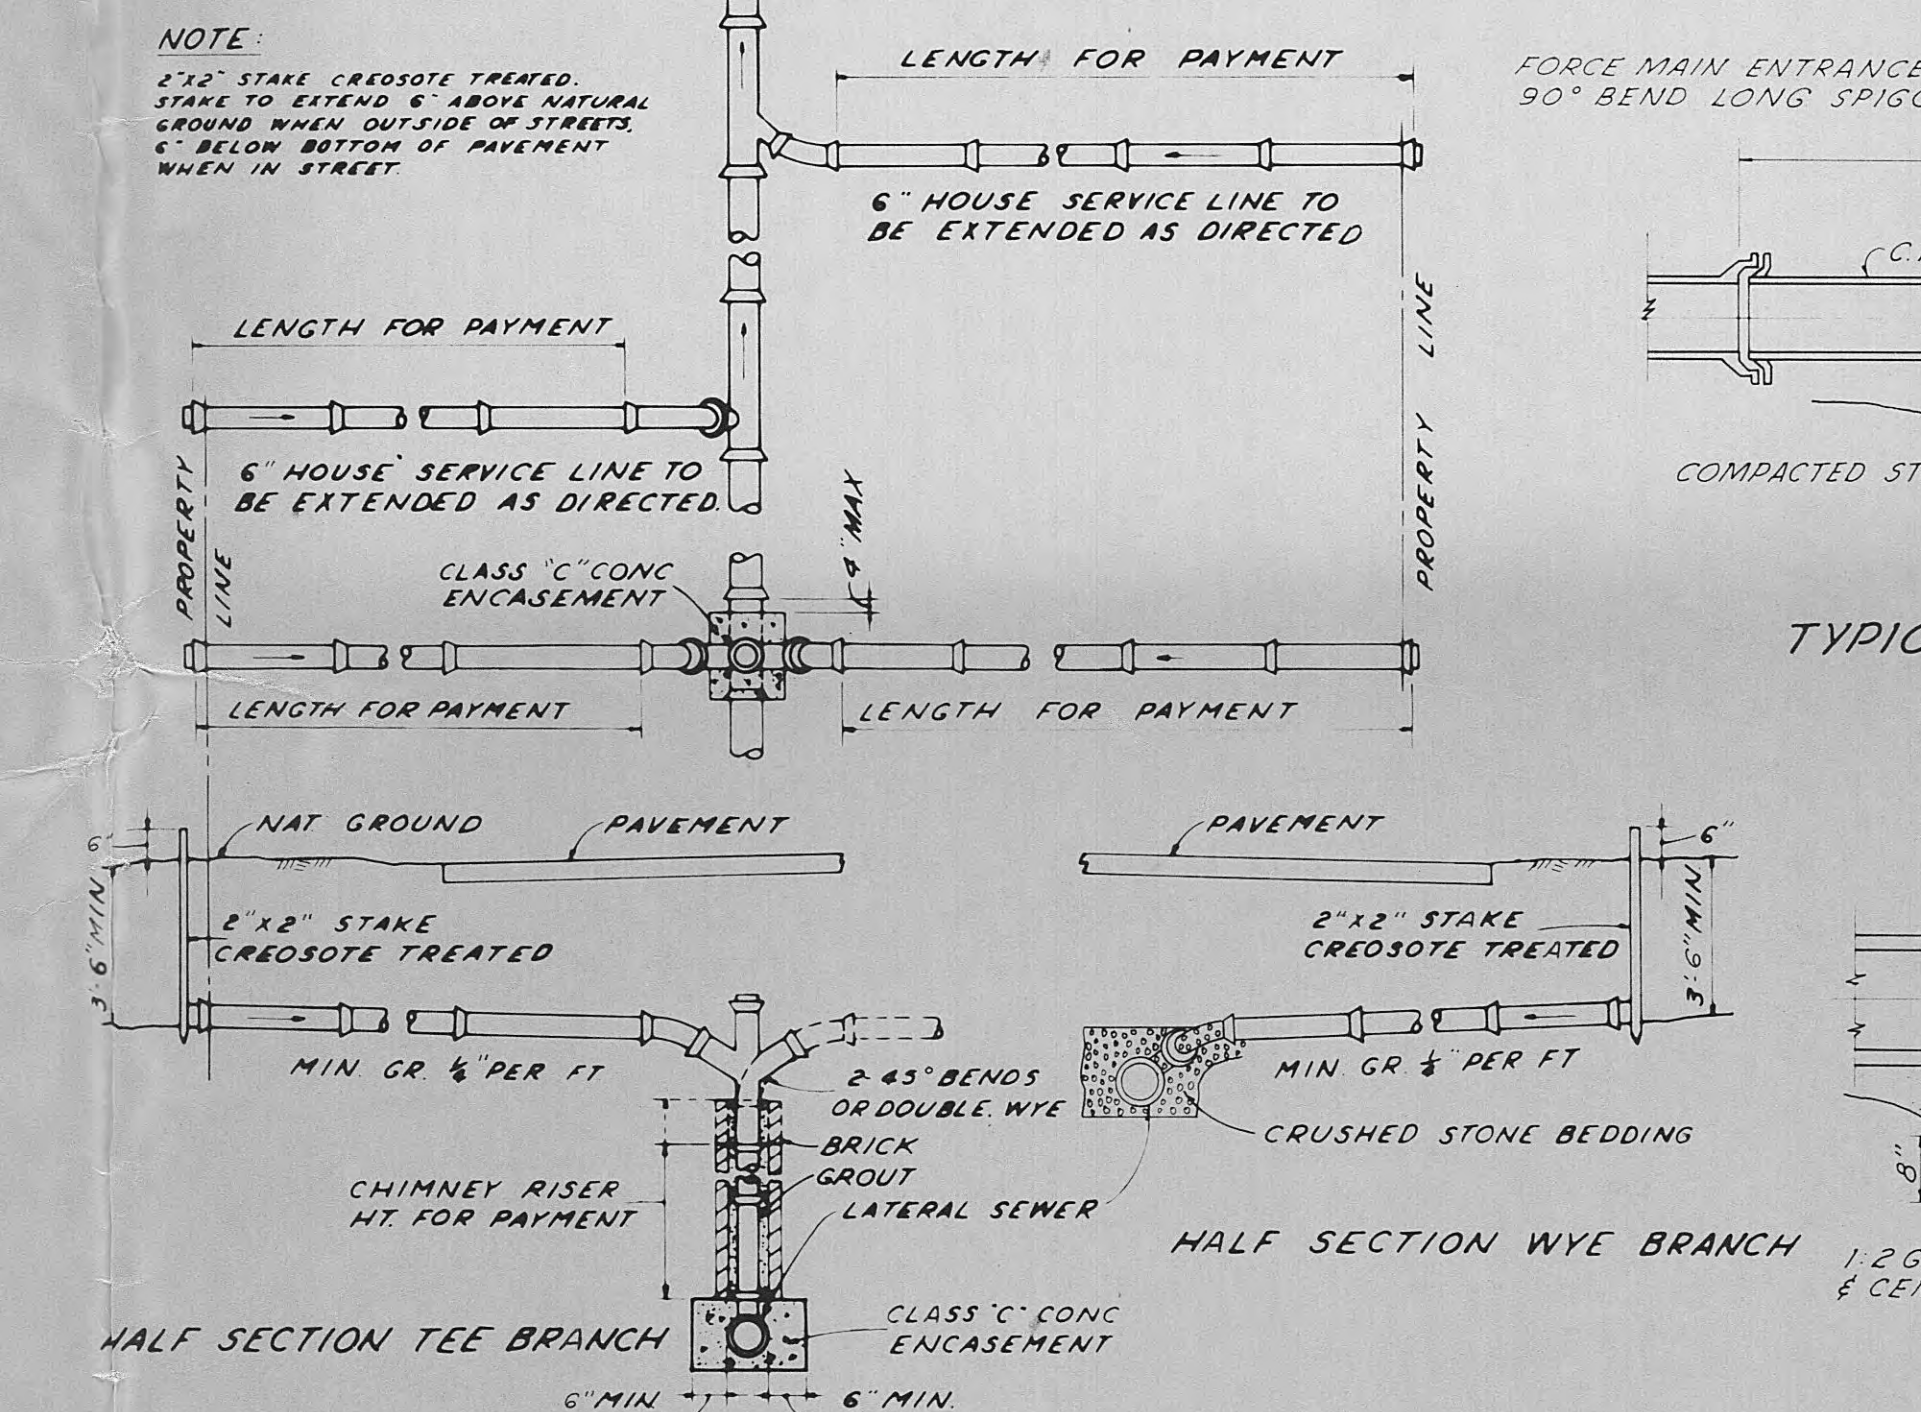 NOTE:
2"X2" STAKE CREOSOTE TREATED.
STAKE TO EXTEND 6" ABOVE NATURAL
GROUND WHEN OUTSIDE OF STREETS,
6" BELOW BOTTOM OF PAVEMENT
WHEN IN STREET.
LENGTH FOR PAYMENT
FORCE MAIN ENTRANCE
90° BEND LONG
6" HOUSE SERVICE LINE TO
BE EXTENDED AS DIRECTED
LENGTH FOR PAYMENT
PROPERTY LINE
6" HOUSE SERVICE LINE TO
BE EXTENDED AS DIRECTED.
PROPERTY
LINE
4" MAX
COMPACTED
CLASS "C" CONC
ENCASEMENT
LENGTH FOR PAYMENT
LENGTH FOR PAYMENT
NAT GROUND
PAVEMENT
PAVEMENT
6"
6"
3'-6" MIN
2"X2" STAKE
CREOSOTE TREATED
2"X2" STAKE
CREOSOTE TREATED
3'-6" MIN
MIN. GR. ¼" PER FT
2-45° BENDS
OR DOUBLE WYE
MIN GR. ⅛" PER FT
BRICK
CRUSHED STONE BEDDING
GROUT
CHIMNEY RISER
HT. FOR PAYMENT
LATERAL SEWER
8"
HALF SECTION WYE BRANCH
HALF SECTION TEE BRANCH
CLASS "C" CONC
ENCASEMENT
6" MIN.
6" MIN.